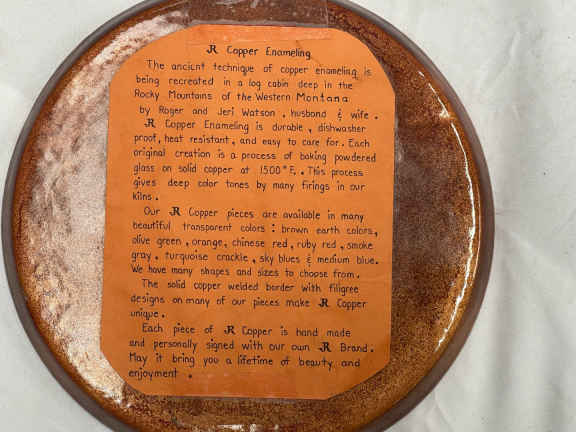 JR Copper Enameling
The ancient technique of copper enameling is
being recreated in a log cabin deep in the
Rocky Mountains of the Western Montana
by Roger and Jeri Watson, husband & wife.
JR Copper Enameling is durable, dishwasher
proof, heat resistant, and easy to care for. Each
original creation is a process of baking powdered
glass on solid copper at 1500°F.. This process
gives deep color tones by many firings in our
kilns.
Our JR Copper pieces are available in many
beautiful transparent colors: brown earth colors,
olive green, orange, chinese red, ruby red, smoke
gray, turquoise crackle, sky blues & medium blue.
We have many shapes and sizes to choose from.
The solid copper welded border with filigree
designs on many of our pieces make JR Copper
unique.
Each piece of JR Copper is hand made
and personally signed with our own JR Brand.
May it bring you a lifetime of beauty and
enjoyment.